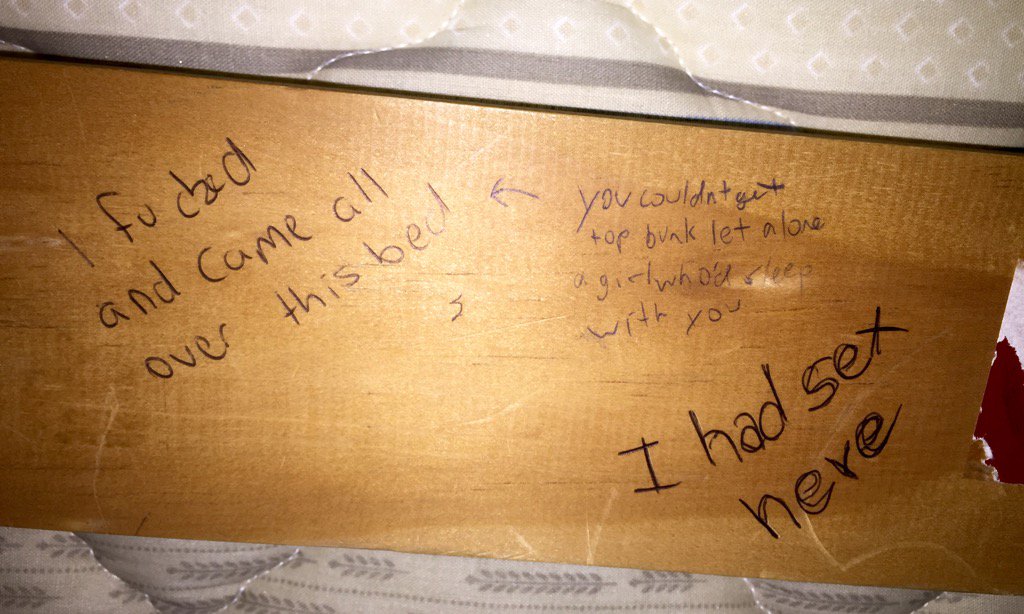 I fucbed
and came all
over this bed
s
you couldnt get
top bunk let alone
a girl who'd sleep
with you
I had sex
here